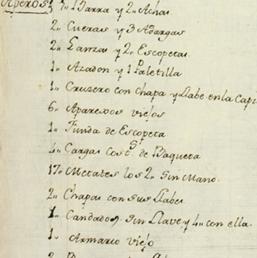 Aperos
1 Barra y 2 Achas
2 Cueras y 3 Adargas
2 Lanzas y 2 Escopetas
1 Azadon y 1 Paletilla
1 Crusero con Chapa y Llabe en la Cap
6 Aparexos viejos
1 Funda de Escopeta
Cargas de Baqueta
17 Mecates los 2 Sin Mano
2 Chapas con sus Llabes
1 Candados Sin Llave y 4 con ella
1 Armario viejo